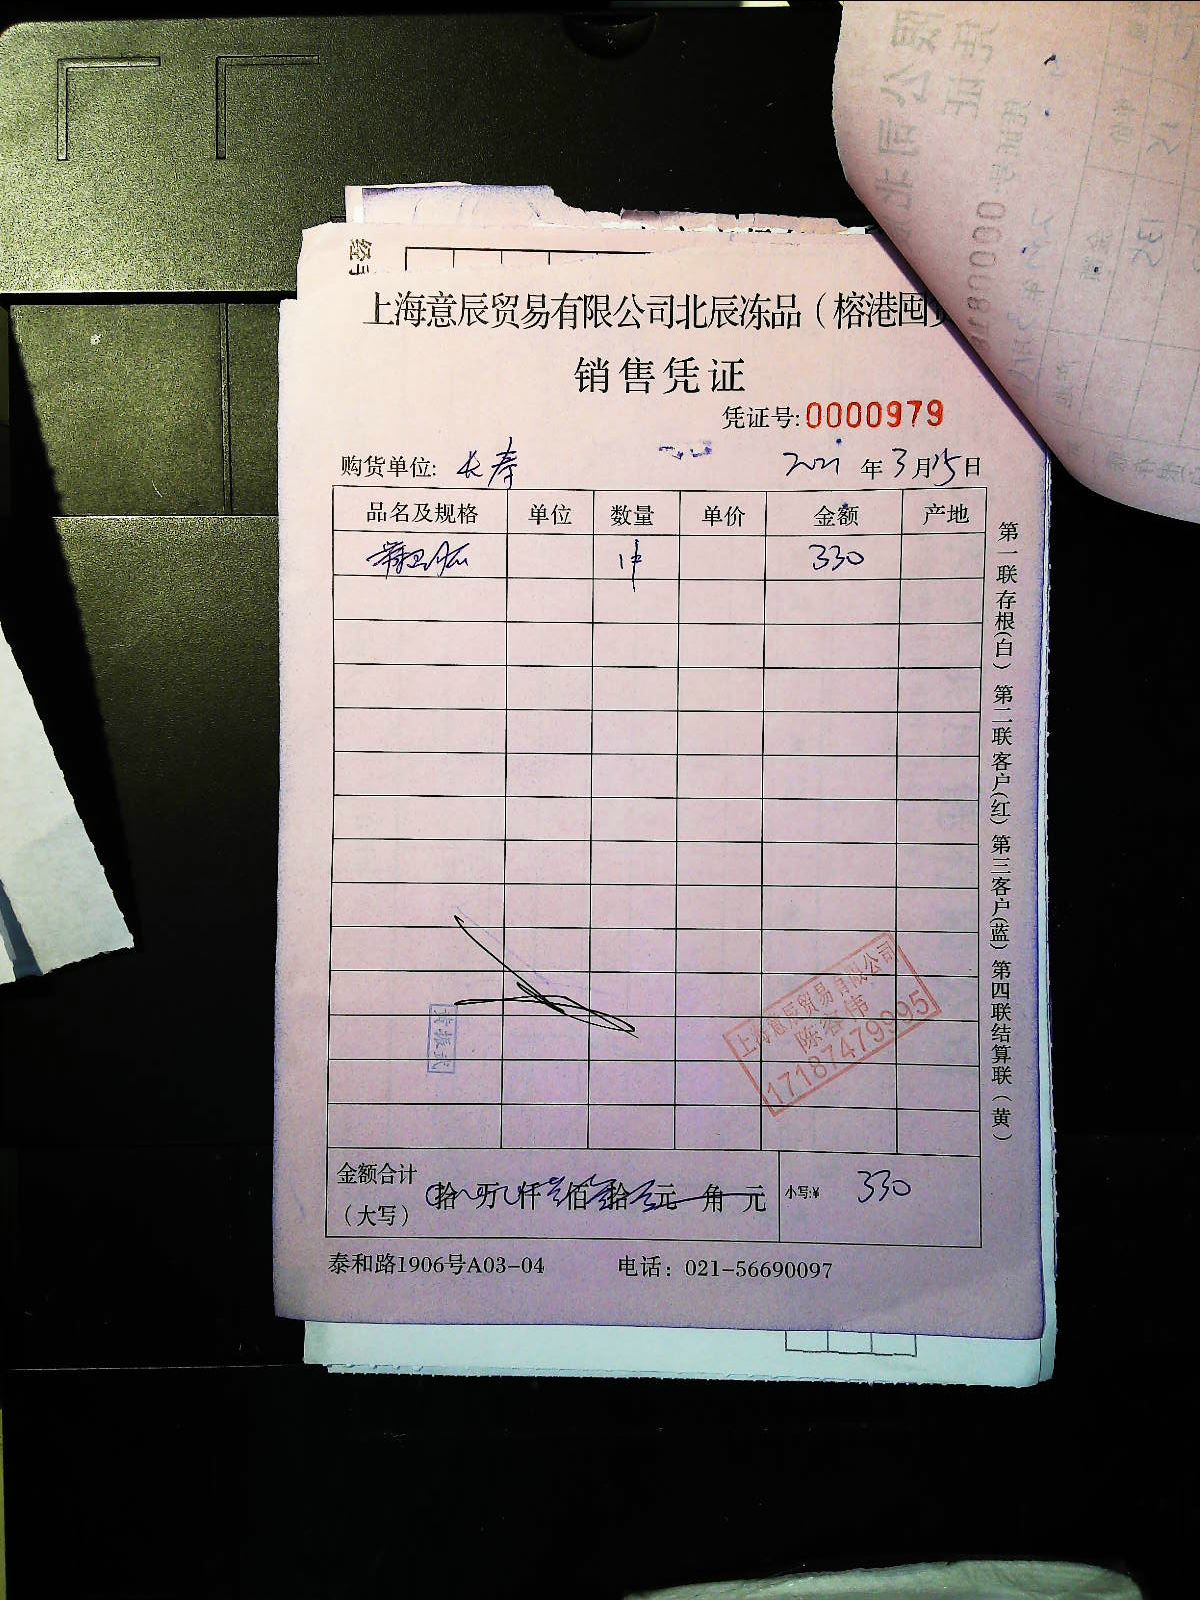 上海意辰贸易有限公司北辰冻品（榕港囤
销售凭证
凭证号:0000979
购货单位: 长寿 2021 年 3 月 15 日
品名及规格 单位 数量 单价 金额 产地
1件 330
第一联存根(白) 第二联客户(红) 第三客户(蓝) 第四联结算联(黄)
上海意辰贸易有限公司
陈容伟
17187479995
金额合计
（大写） 拾 万 仟 佰 拾 元 角 元 小写:¥ 330
泰和路1906号A03-04 电话：021-56690097